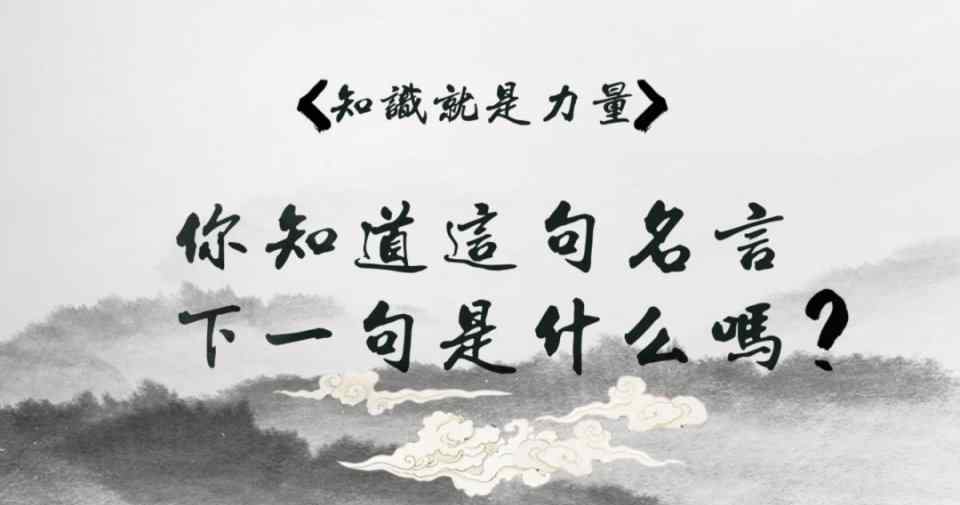 《知識就是力量》
你知道這句名言
下一句是什么嗎?